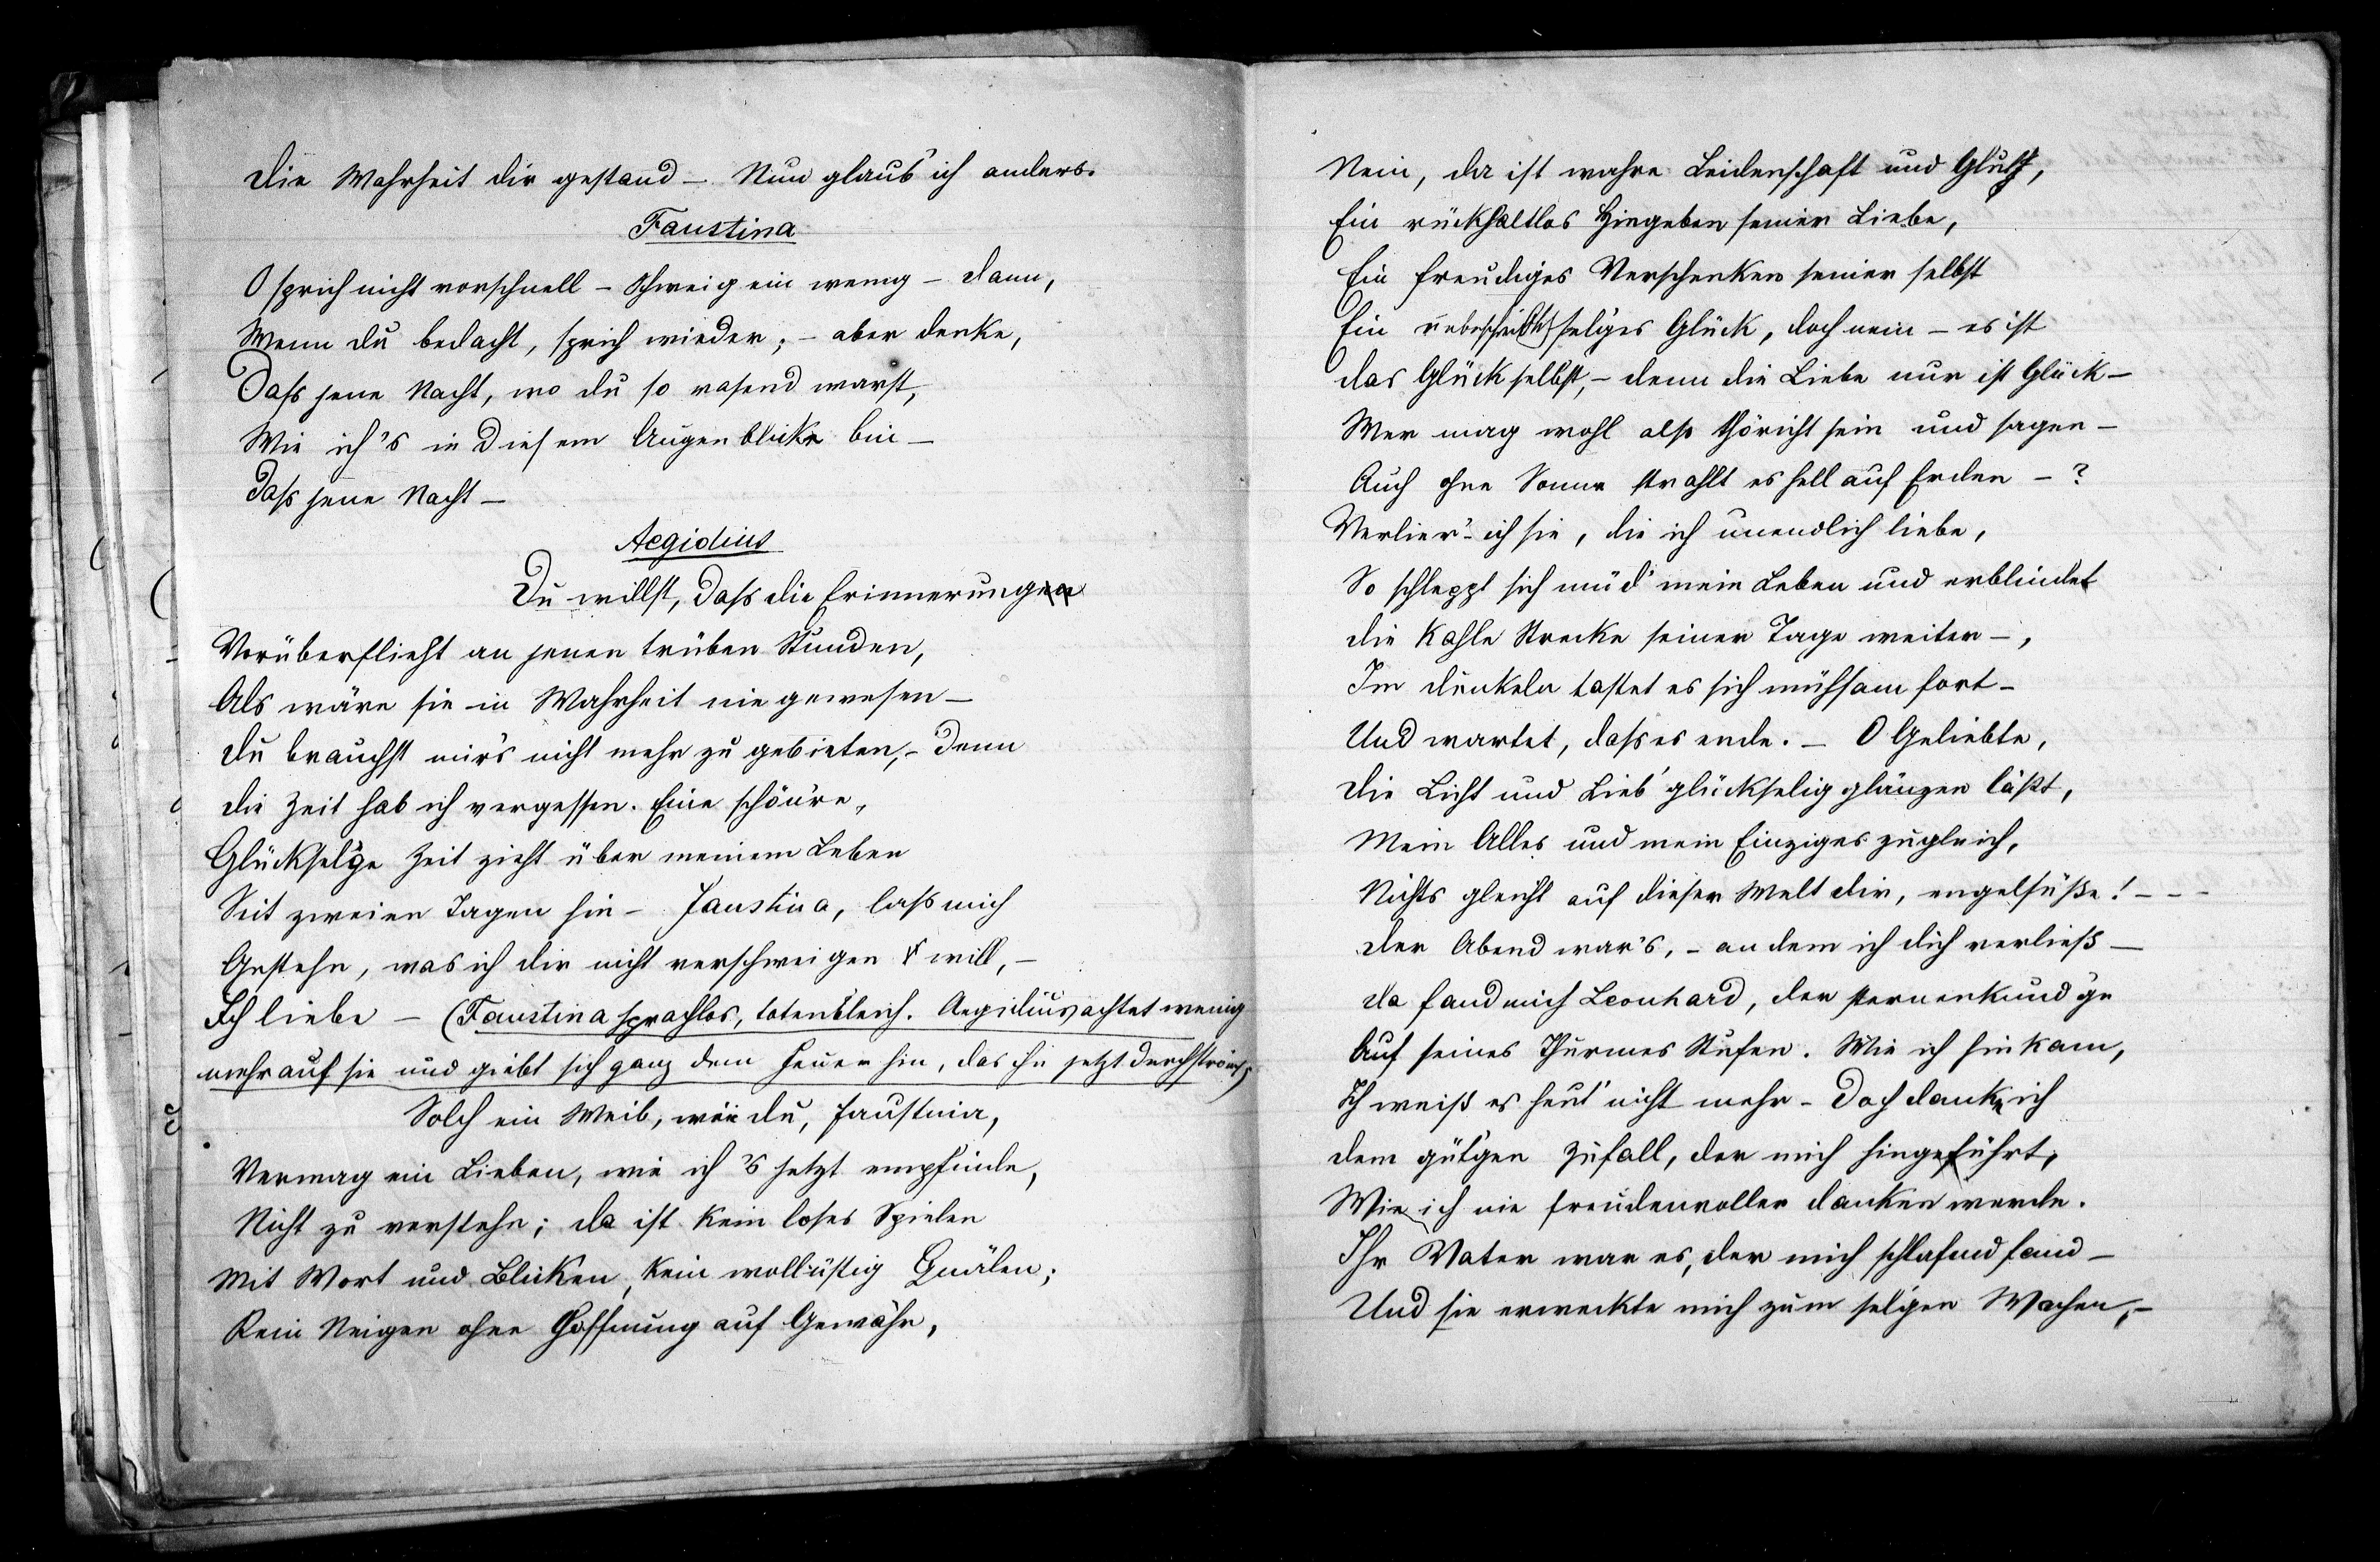 Die Wahrheit dir gestand – Nun glaub' ich anders.
Faustina
O sprich nicht vorschnell – schweig ein wenig – dann,
Wenn du bedacht, sprich wieder; – aber denke,
Dass jene Nacht, wo du so rasend warst,
Wie ich's in diesem Augenblicke bin –
Dass jene Nacht –
Aegidius
Du willst, dass die Erinnerungen
Vorüberflieht an jenen trüben Stunden,
Als wäre sie in Wahrheit nie gewesen –
Du brauchst mir's nicht mehr zu gebieten, – denn
Die Zeit hab ich vergessen. Eine schön're,
Glücksel'ge Zeit zieht über meinem Leben
Seit zweien Tagen hin – Faustina, lass mich
Gestehn, was ich dir nicht verschweigen will, –
Ich liebe – (Faustina sprachlos, totenbleich. Aegidius achtet wenig
mehr auf sie und giebt sich ganz dem Feuer hin, das ihn jetzt durchströmt)
Solch ein Weib, wie du, Faustina,
Vermag ein Lieben, wie ich's jetzt empfinde,
Nicht zu verstehn; da ist kein loses Spielen
Mit Wort und Blicken, kein wollüstig Quälen;
Kein Neigen ohne Hoffnung auf Gewähr,
Nein, da ist wahre Leidenschaft und Glut,
Ein rückhaltlos Hingeben seiner Liebe,
Ein freudiges Verschenken seiner selbst
Ein unbeschreiblich sel'ges Glück, doch nein – es ist
Das Glück selbst, – denn die Liebe nur ist Glück –
Wer mag wohl also thöricht sein und sagen –
Auch ohne Sonne strahlt es hell auf Erden – ?
Verlier' ich sie, die ich unendlich liebe,
So schleppt sich müd' mein Leben und erblindet
Die kahle Strecke seiner Tage weiter –,
Im Dunkeln tastet es sich mühsam fort –
Und wartet, dass es ende. – O Geliebte,
Die Licht und Lieb' glückselig glänzen läßt,
Mein Alles und mein Einziges zugleich,
Nichts gleicht auf dieser Welt dir, engelsüße! – – –
Der Abend war's, – an dem ich dich verließ –
Da fand mich Leonhard, der sternenkund'ge
Auf seines Thurmes Stufen. Wie ich hinkam,
Ich weiß es heut' nicht mehr – Doch danke ich
Dem güt'gen Zufall, der mich hingeführt,
Wie ich nie freudenvoller danken werde.
Ihr Vater war es, der mich schlafend fand –
Und sie erweckte mich zum sel'gen Wachen, –